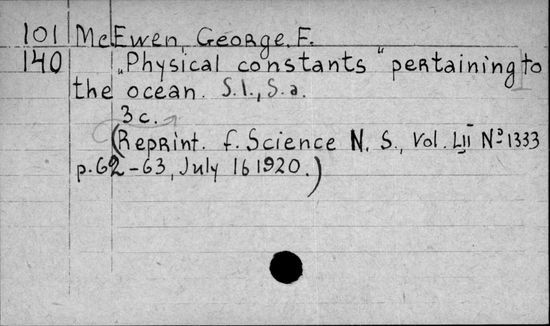 101 McEwen, George. F.
140 „Physical constants" pertaining to
the ocean. S.l., S.a.
3 c.
(Reprint. f. Science N. S., Vol. LII № 1333
p. 62-63, July 16 1920.)